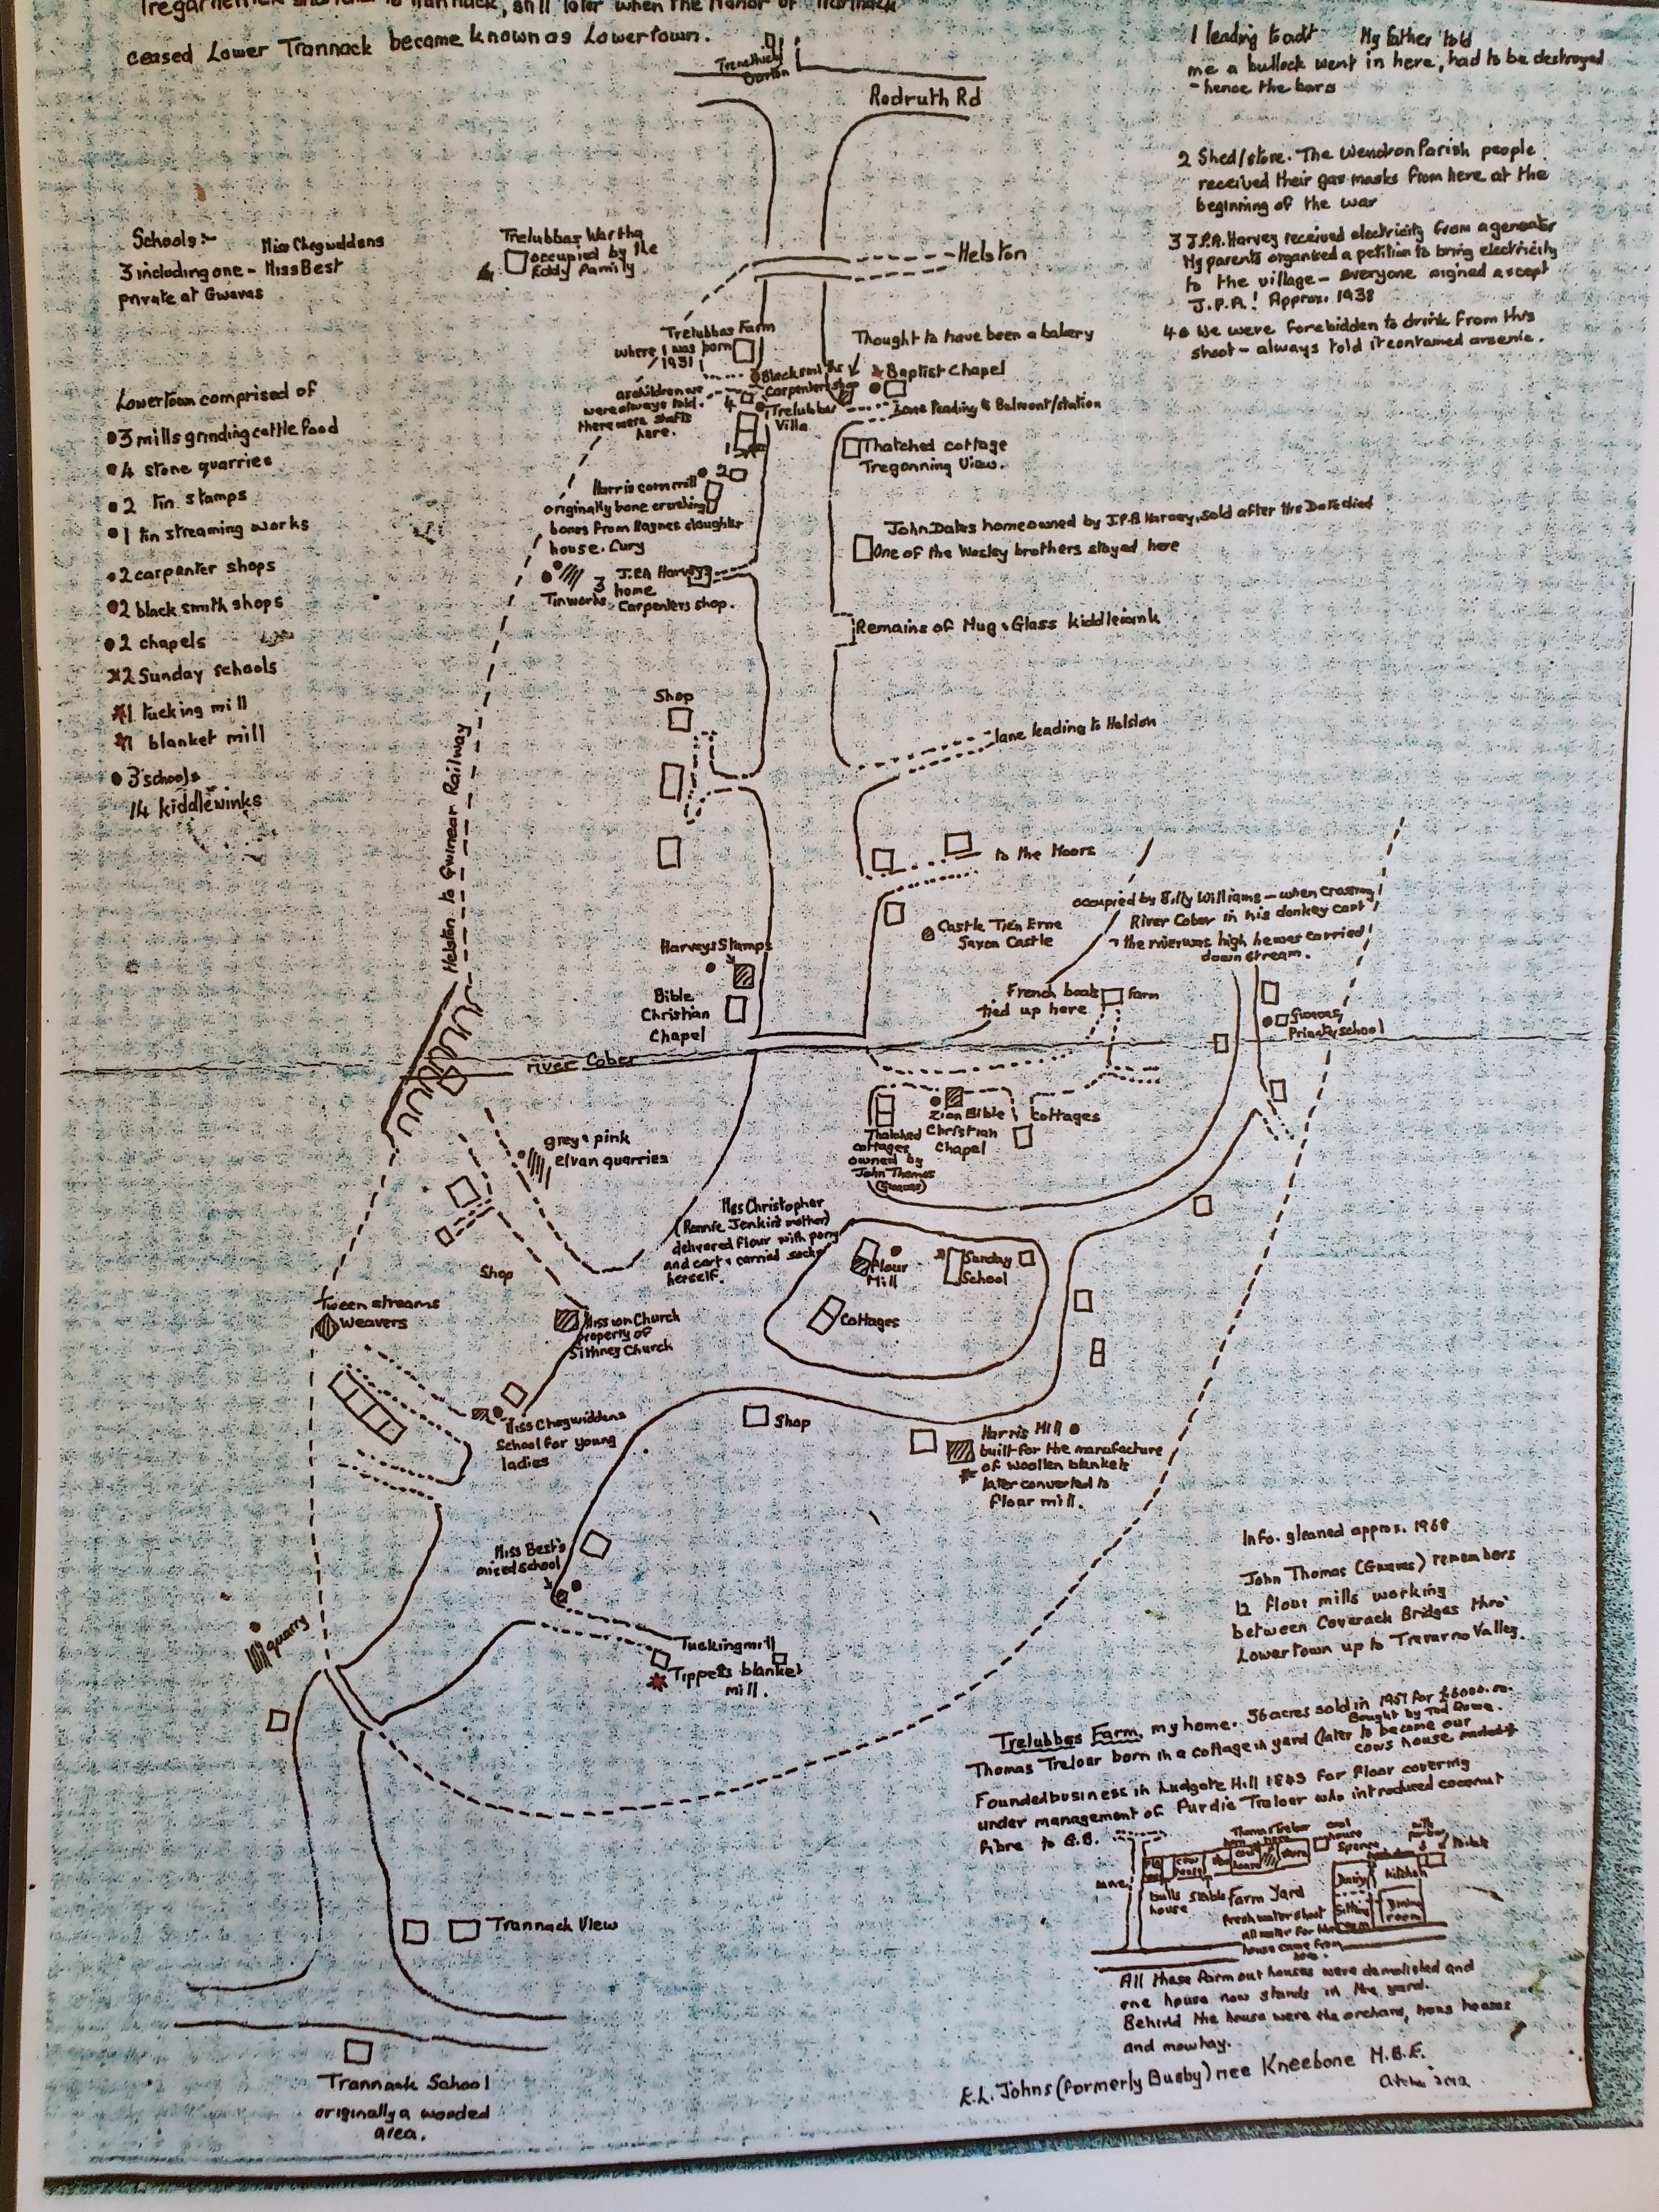 ceased Lower Trannack became known as Lowertown.
Trenethick Barton
Redruth Rd
1 leading to adit My father told
me a bullock went in here, had to be destroyed
- hence the bars
2 Shed/store. The Wendron Parish people
received their gas masks from here at the
beginning of the war
3 J.P.A. Harvey received electricity from a generator
My parents organised a petition to bring electricity
to the village - everyone signed except
J.P.A! Approx. 1938
4 We were forebidden to drink from this
shoot - always told it contained arsenic.
Schools:- Miss Chegwiddens
3 including one - Miss Best
private at Gwavas
Trelubbas Wartha
occupied by the
Eddy Family
Helston
Lowertown comprised of
3 mills grinding cattle food
4 stone quarries
2 tin stamps
1 tin streaming works
2 carpenter shops
2 black smith shops
2 chapels
2 Sunday schools
1 tucking mill
1 blanket mill
3 schools
14 kiddlewinks
Trelubbas Farm
where I was born
1931
Thought to have been a bakery
Blacksmiths
Carpenters shop
Baptist Chapel
as children we
were always told
there were shafts
here.
4
Trelubbas
Villa
Lane leading to Belmont/station
1
Thatched cottage
Tregonning View.
2
Harris corn mill
originally bone crushing
bones from Raynes slaughter
house. Cury
John Dales home owned by J.P.A Harvey, sold after Mrs Dale died
One of the Wesley brothers stayed here
Tin works
3 J.P.A Harveys
home
Carpenters shop.
Remains of Mug & Glass kiddlewink
Shop
lane leading to Helston
Helston to Gwinear Railway
to the Moors
Castle Tien Erne
Saxon Castle
occupied by Billy Williams - when crossing
River Cober in his donkey cart
the river was high he was carried
down stream.
Harveys Stamps
Bible
Christian
Chapel
French boats
tied up here
Farm
Gwavas
Private school
river Cober
grey & pink
elvan quarries
Thatched
cottages
owned by
John Thomas
(Gwavas)
Zion Bible
Christian
Chapel
Cottages
Mrs Christopher
(Ronnie Jenkins mother)
delivered flour with pony
and cart & carried sacks
herself.
Flour
Mill
Sunday
School
Cottages
Shop
Tween streams
Weavers
Mission Church
property of
Sithney Church
Miss Chegwiddens
School for young
ladies
Shop
Harris Mill
built for the manufacture
of woollen blankets
later converted to
flour mill.
Miss Best's
mixed school
quarry
Tuckingmill
Tippets blanket
mill.
Info. gleaned approx. 1968
John Thomas (Gwavas) remembers
12 flour mills working
between Coverack Bridges thro'
Lowertown up to Trevarno Valley.
Trelubbas Farm, my home. 56 acres sold in 1957 for £6000.00.
Bought by Ted Rowe.
Thomas Treloar born in a cottage in yard (later to become our
cows house marked *
Founded business in Ludgate Hill 1843 for floor covering
under management of Purdie Treloar who introduced coconut
fibre to G.B.
Thomas Treloar
born here
coal
house
Spence
toilets
lane
cow
house
Dairy
kitchen
bulls
house
stable
Farm Yard
fresh water shoot
all water for the
house came from
here.
Sitting
room
Dining
room
All these farm out houses were demolished and
one house now stands in the yard.
Behind the house were the orchard, hens houses
and mowhay.
E.L. Johns (formerly Busby) nee Kneebone M.B.E.
October 2012
Trannack View
Trannack School
originally a wooded
area.